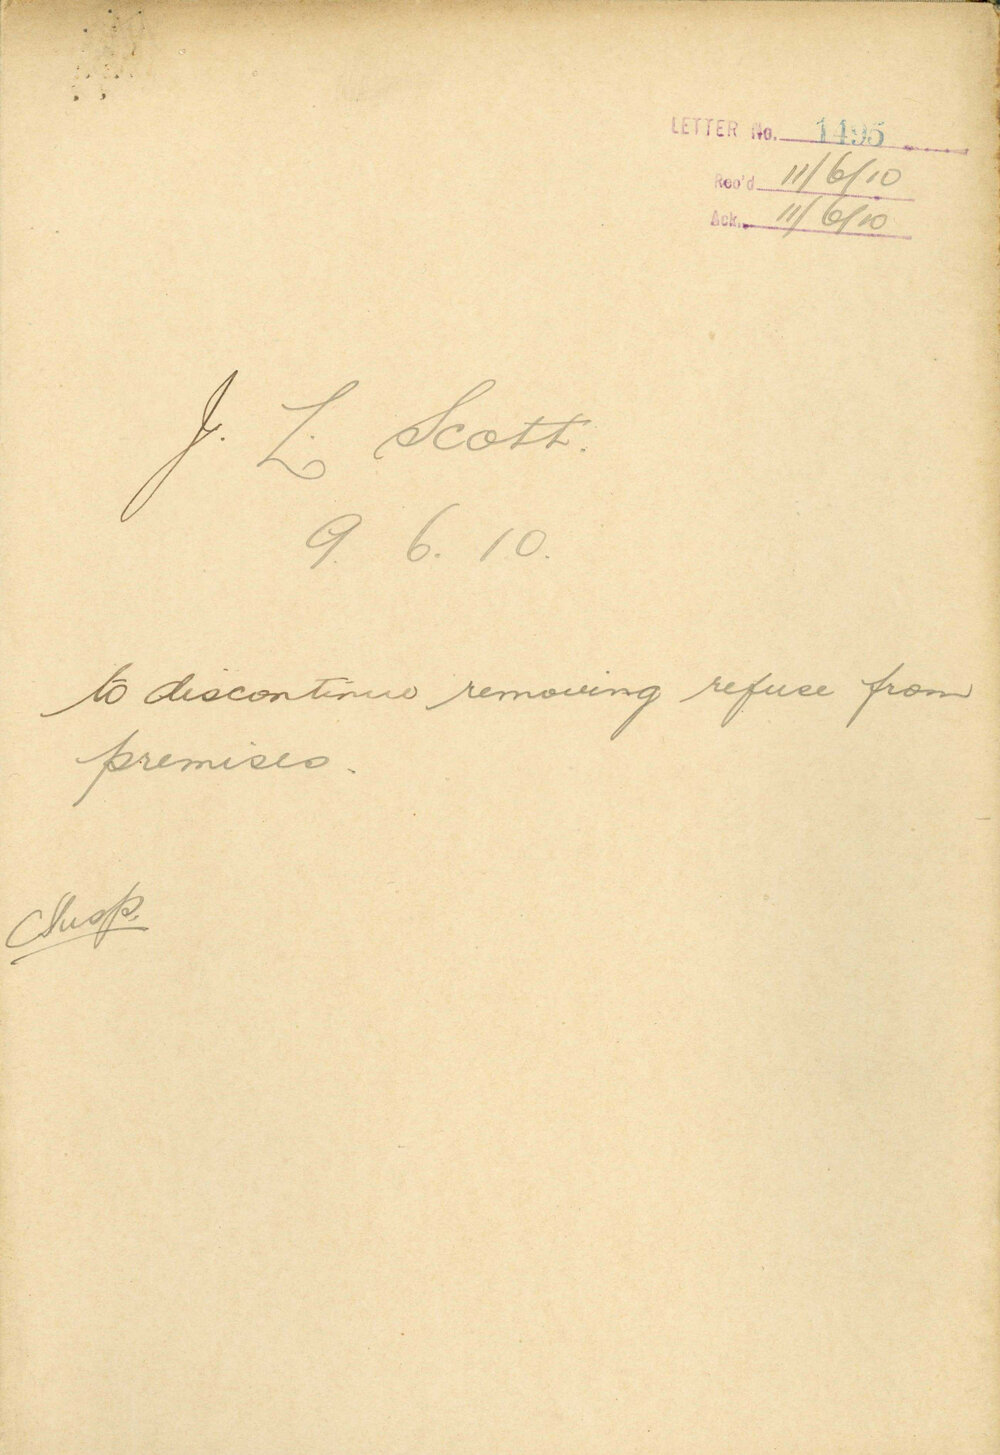 LETTER No. 1495
Rec'd 11/6/10
Ack. 11/6/10
J. L. Scott.
9. 6. 10.
to discontinue removing refuse from
premises.